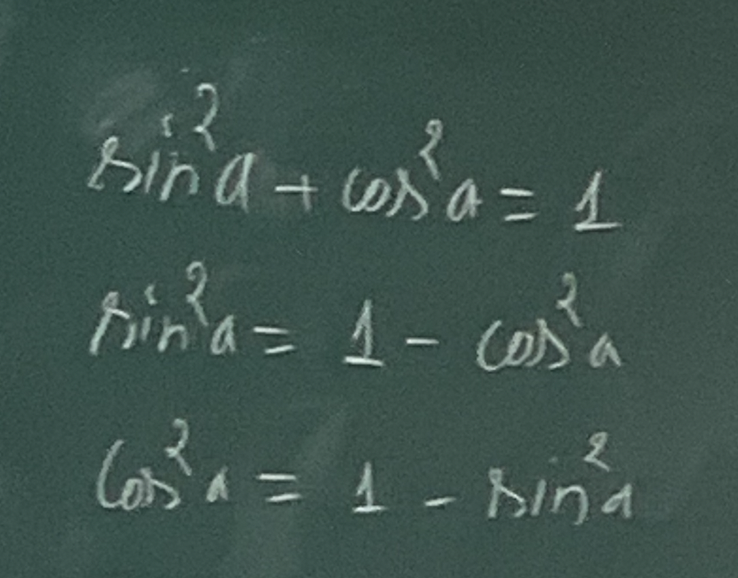 sin²a + cos²a = 1
sin²a = 1 - cos²a
cos²a = 1 - sin²a